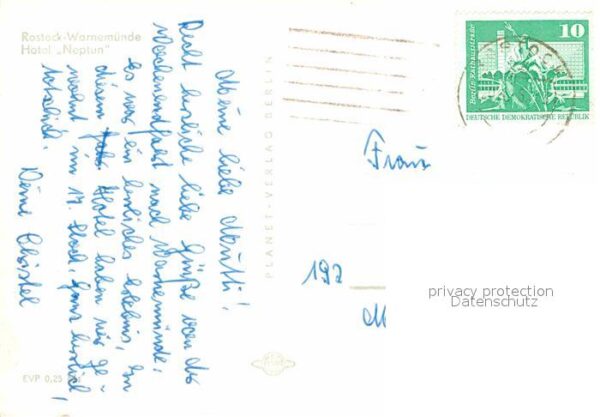 Rostock-Warnemünde
Hotel „Neptun"
Meine liebe Mutti!
Recht herzliche liebe Grüße von der
Wochenendfahrt nach Warnemünde.
Es war ein herrliches Erlebnis, in
diesem Hotel haben wir ge-
wohnt im 17. Stock, ganz herrlich,
tatsächlich.
Deine Christel
EVP 0,25
PLANET-VERLAG BERLIN
Berlin, Rathausstraße
10
DEUTSCHE DEMOKRATISCHE REPUBLIK
ROSTOCK
Frau
192
M
privacy protection
Datenschutz